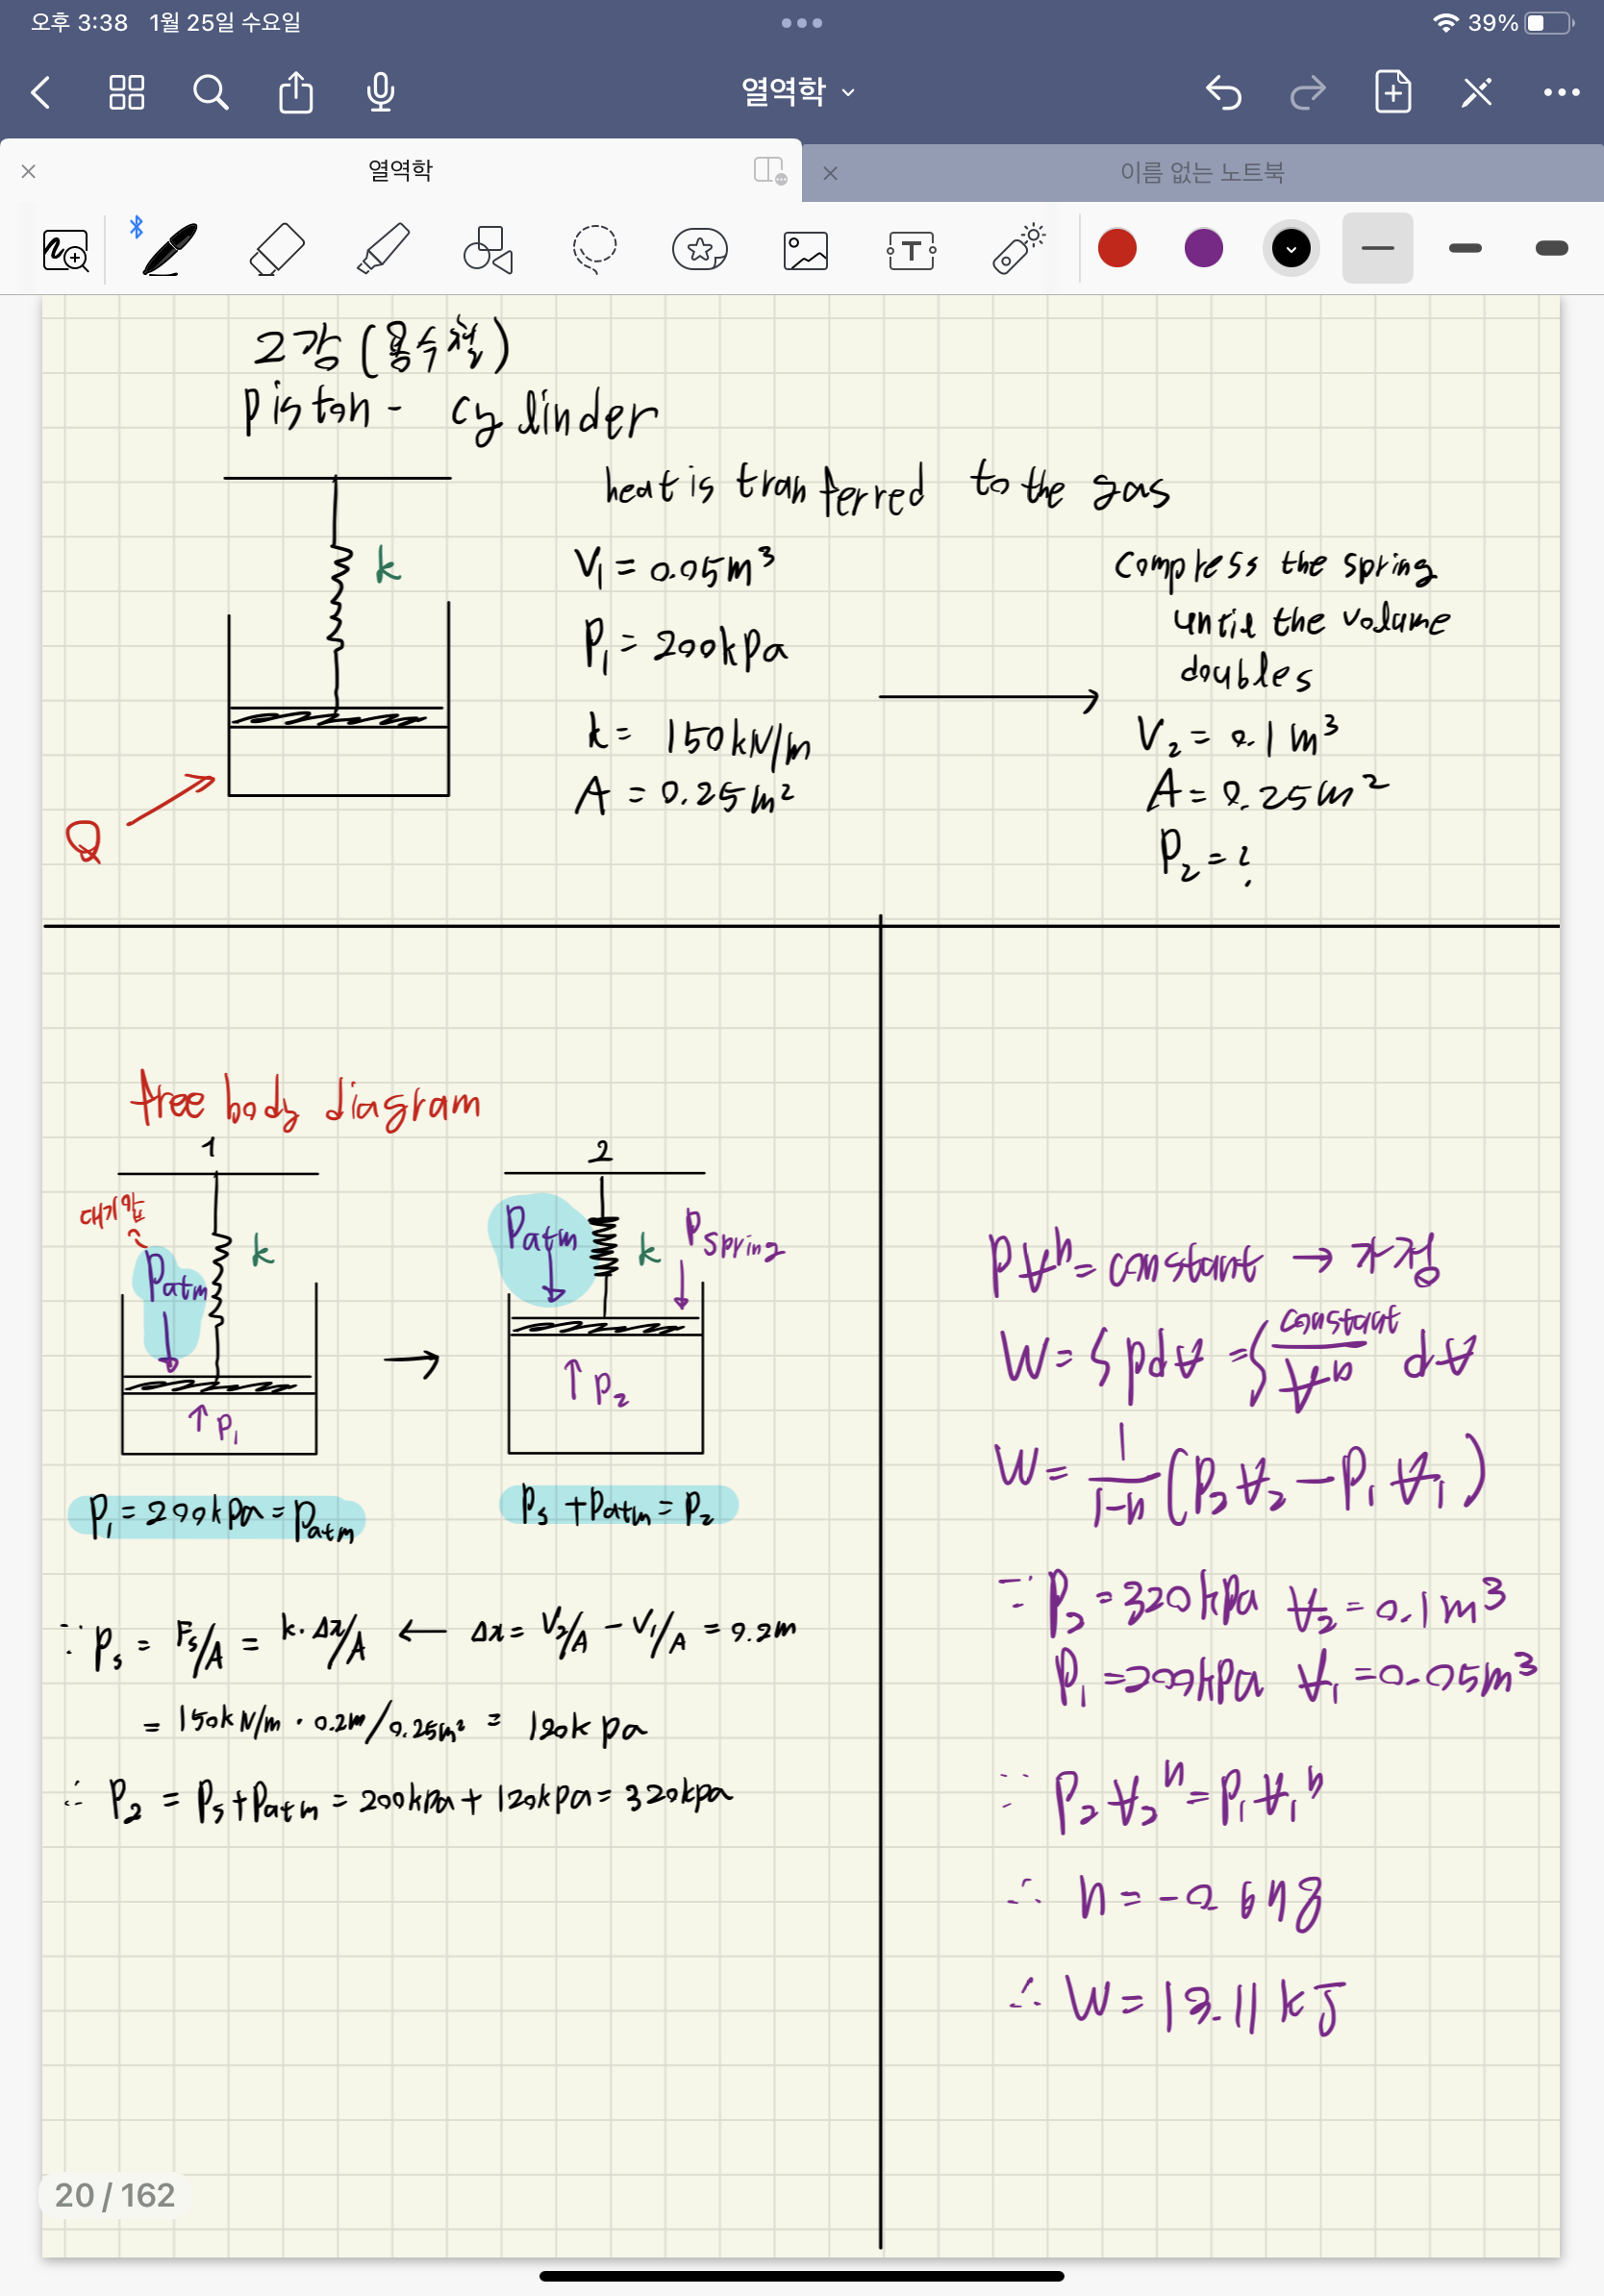 오후 3:38 1월 25일 수요일
39%
열역학
열역학
이름 없는 노트북
2강 (홍수철)
piston - cylinder
heat is tranferred to the gas
k
V₁ = 0.05m³
P₁ = 200kpa
k = 150kN/m
A = 0.25m²
Q
compress the spring
until the volume
doubles
V₂ = 0.1m³
A = 0.25m²
P₂ = ?
free body diagram
1
대기압
Patm
k
P₁
2
Patm
k
Pspring
P₂
P₁ = 200kpa = Patm
Ps + Patm = P₂
∵ Ps = Fs/A = k·Δx/A ← Δx = V₂/A − V₁/A = 0.2m
= 150kN/m · 0.2m/0.25m² = 120kpa
∴ P₂ = Ps + Patm = 200kpa + 120kpa = 320kpa
PVⁿ = constant → 가정
W = ∫pdV = ∫constant/Vⁿ dV
W = 1/(1-n) (P₂V₂ − P₁V₁)
∵ P₂ = 320kpa V₂ = 0.1m³
P₁ = 200kpa V₁ = 0.05m³
∵ P₂V₂ⁿ = P₁V₁ⁿ
∴ n =
∴ W = 13.11 kJ
20 / 162